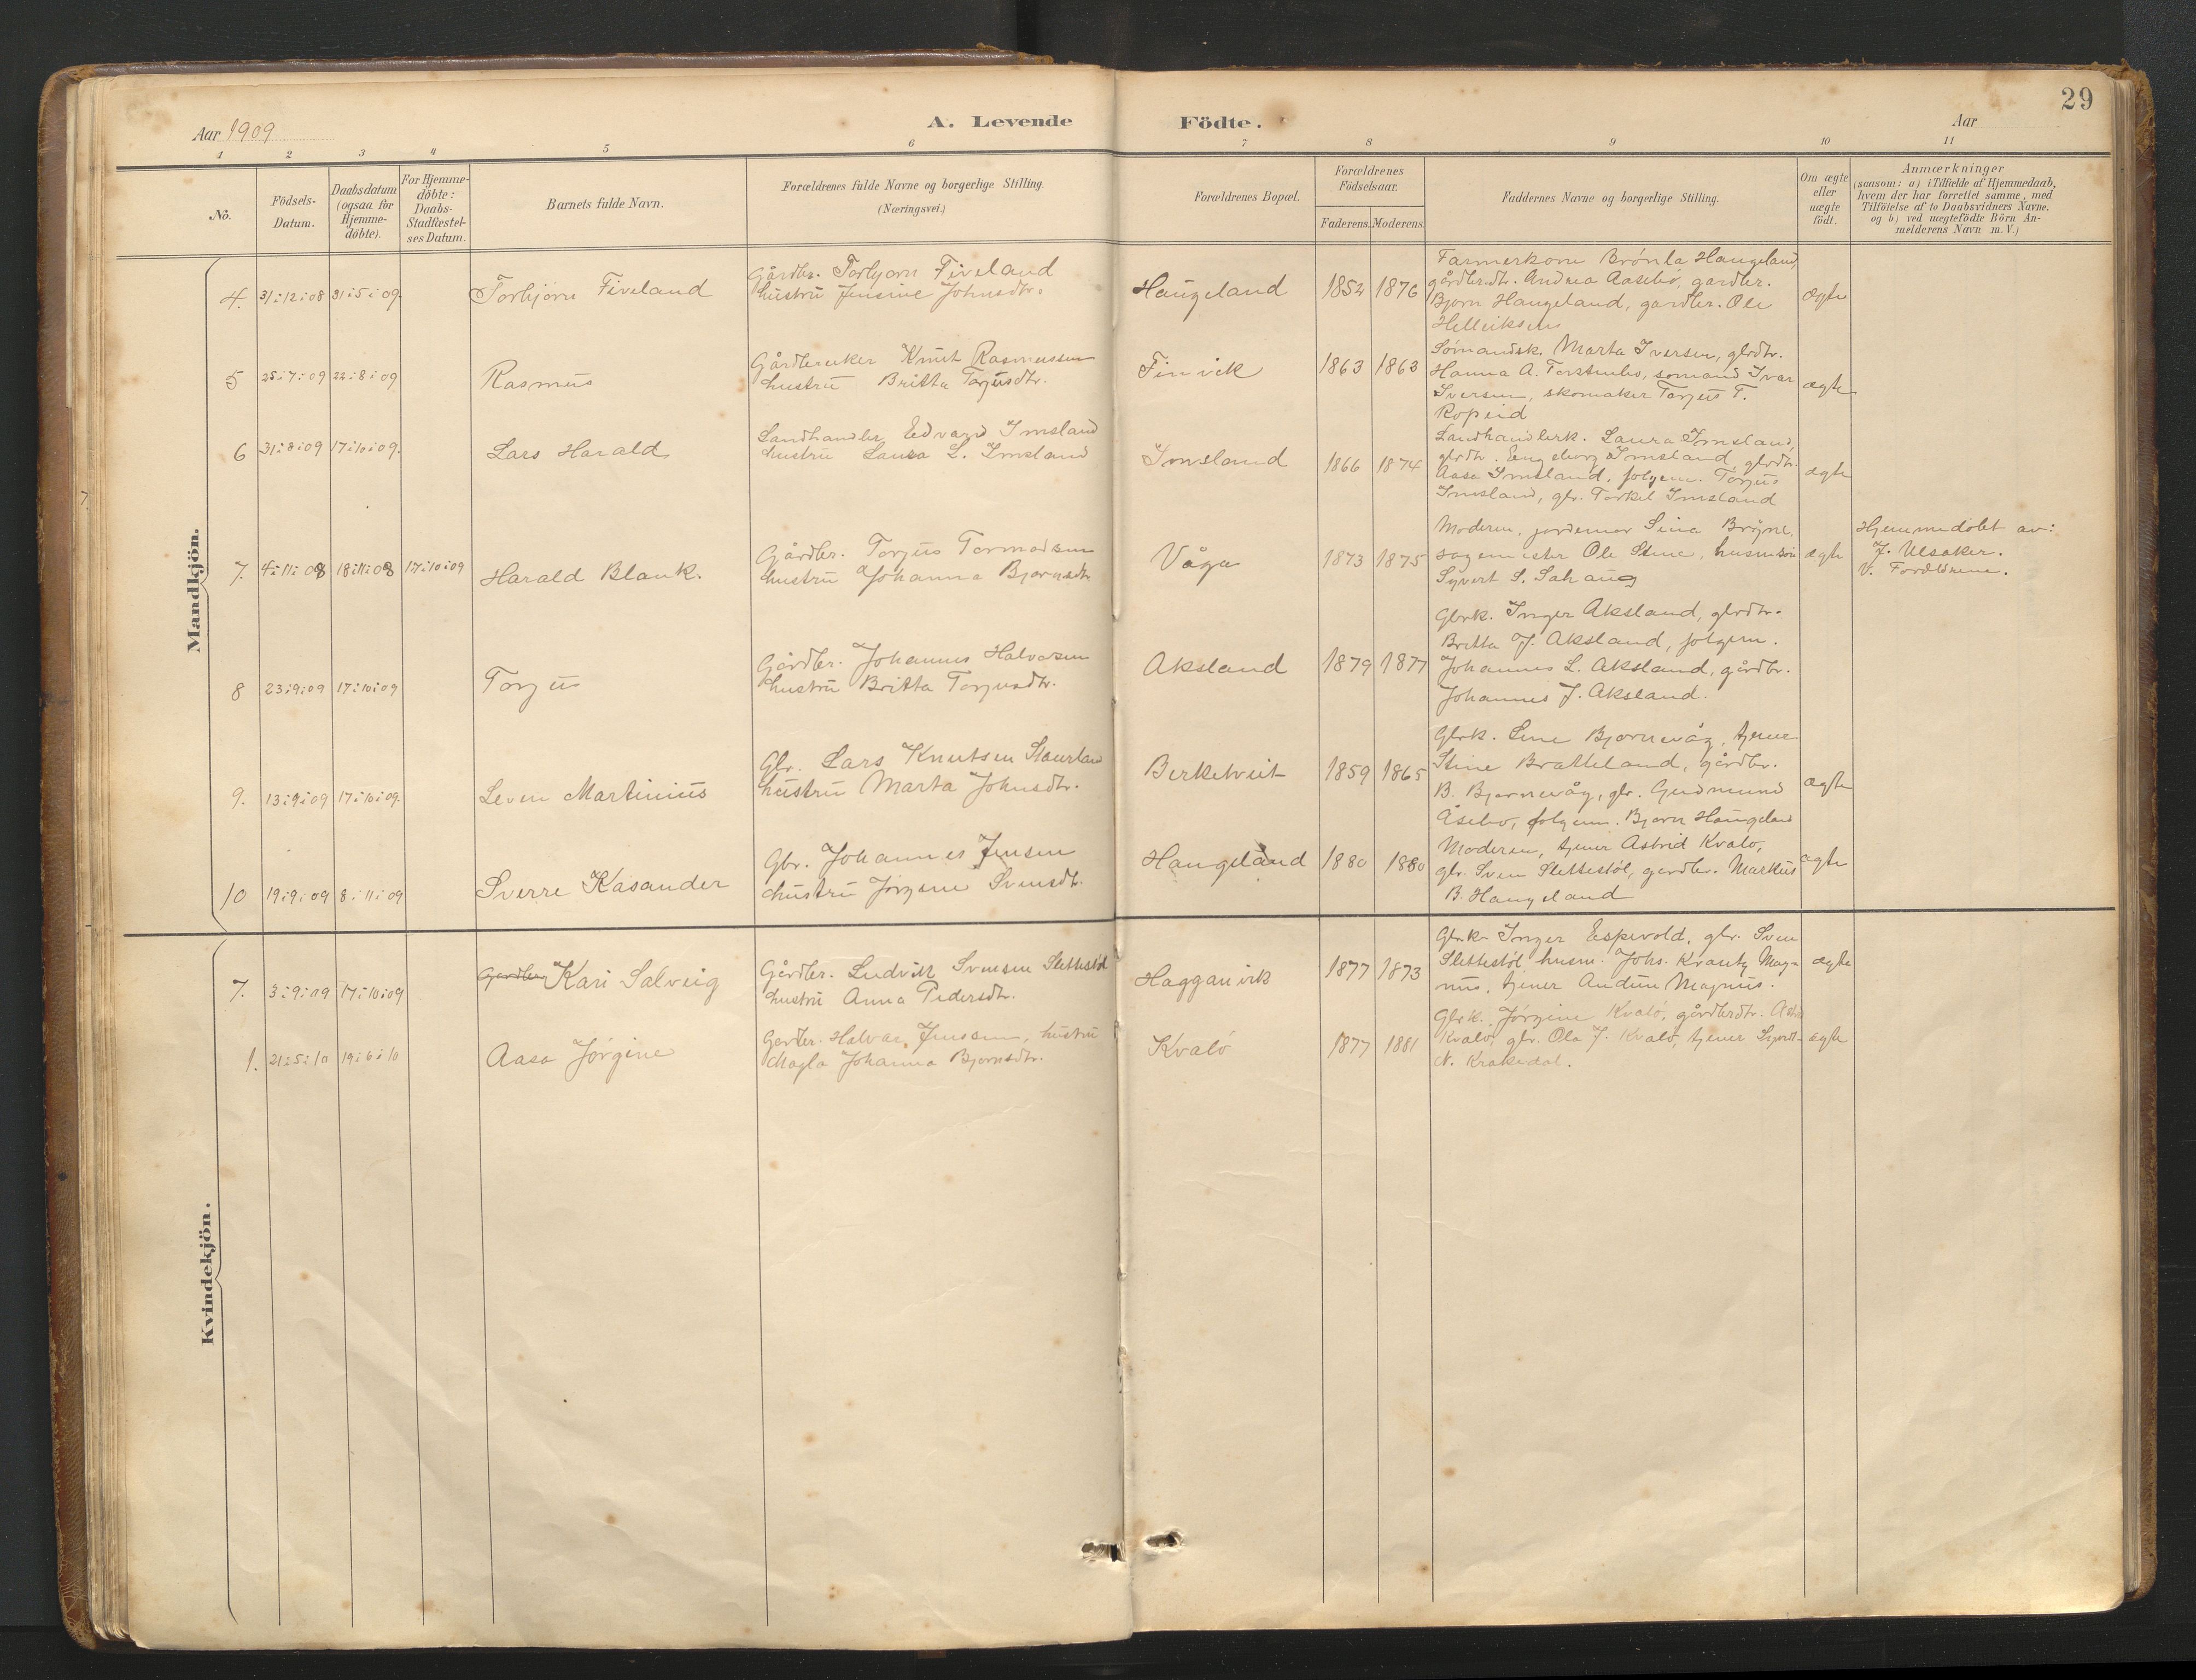 29
Aar 1909
A. Levende Födte.
Aar
1 2 3 4 5 6 7 8 9 10 11
No.
Födsels-
Datum.
Daabsdatum
(ogsaa for
Hjemme-
döbte).
For Hjemme-
döbte:
Daabs-
Stadfæstel-
ses Datum.
Barnets fulde Navn.
Forældrenes fulde Navne og borgerlige Stilling.
(Næringsvei.)
Forældrenes Bopæl.
Forældrenes
Födselsaar.
Faderens. Moderens.
Faddernes Navne og borgerlige Stilling.
Om ægte
eller
uægte
födt.
Anmærkninger
(saasom: a) i Tilfælde af Hjemmedaab,
hvem der har forrettet samme, med
Tilföielse af to Daabsvidners Navne.
og b) ved uægtefödte Börn An-
melderens Navn m. V.)
Mandkjön.
4. 31:12:08 31:5:09.
Torbjörn Fiveland
Gårdbr. Torbjorn Fiveland
hustru Jensine Johnsdtr.
Haugeland
1852 1876
Farmerkone Brönla Haugeland,
gårdbr.dtr. Andrea Aasebö, gardbr.
Bjorn Haugeland, gardbr. Ole
Helleiksen
ægte
5 25:7:09 22:8:09
Rasmus
Gårdbruker Knut Rasmussen
hustru Britta Torjusdtr.
Finvik
1863 1863
Sömandsk. Marta Iversen, gbrdtr.
Hanna A. sömand Ivar
Iversen, skomaker Torjus T.
Ropeid
ægte
6 31:8:09 17:10:09.
Lars Harald
Landhandler Edvard Imsland
hustru Laura L. Imsland
Imsland
1866 1874
Landhandlerk. Laura Imsland,
gbrdtr. Engeborg Imsland, gbrdtr.
Aasa Imsland, folgem. Torjus
Imsland, gbr. Torkel Imsland
ægte
7. 4:11:08 18:11:08 17:10:09
Harald Blank.
Gårdbr. Torjus Tormodsen
hustru Johanna Bjornsdtr.
Våga
1873 1875
Moderen, jordemor Sina Bryne,
sagemester Ole Stene, husm.sön
Syvert S. Sahaug
ægte
Hjemmedöbt av:
J. Ulsaker.
V.
8 23:9:09 17:10:09
Torjus
Gårdbr. Johannes Halvorsen
hustru Britta Torjusdtr.
Aksland
1879 1877
Gbrk. Inger Aksland, gbrdtr.
Britta J. Aksland, folgem.
Johannes L. Aksland, gårdbr.
Johannes J. Aksland.
9. 13:9:09 17:10:09.
Leven Martinius
Gbr. Lars Knutsen
hustru Marta Johnsdtr.
Berketveit
1859 1865
Gbrk. Lene Bjornevåg, tjener
Stine Bratteland, gårdbr.
B. Bjornevåg, gbr. Gudmund
Åsebö, folgem. Bjorn Haugeland
ægte
10 19:9:09 8:11:09
Sverre Kasander
Gbr. Johannes Jensen
hustru Jörgine Svensdtr.
Haugeland
1880 1880
Moderen, tjener Astrid Kvalö,
gbr. Sven Slettestöl, gardbr. Markus
B. Haugeland
ægte
Kvindekjön.
7. 3:9:09 17:10:09
Gardbr. Kari Salveig
Gårdbr. Ludvik Svensen Slettestöl
hustru Anna Pedersdtr.
Hagganvik
1877 1873
Gbrk. Inger Espevold, gbr. Sven
Slettestöl, husm. Johs. Krantz Mag-
nus, tjener Audun Magnus.
ægte
1. 21:5:10 19:6:10
Aasa Jörgine
Gardbr. Halvar Jenssen, hustru
Magla Johanna Bjornsdtr.
Kvalö
1877 1881
Gbrk. Jörgine Kvalö, gårdbrdtr.
Kvalö, gbr. Ola J. Kvalö, tjener
N. Krakedal.
ægte